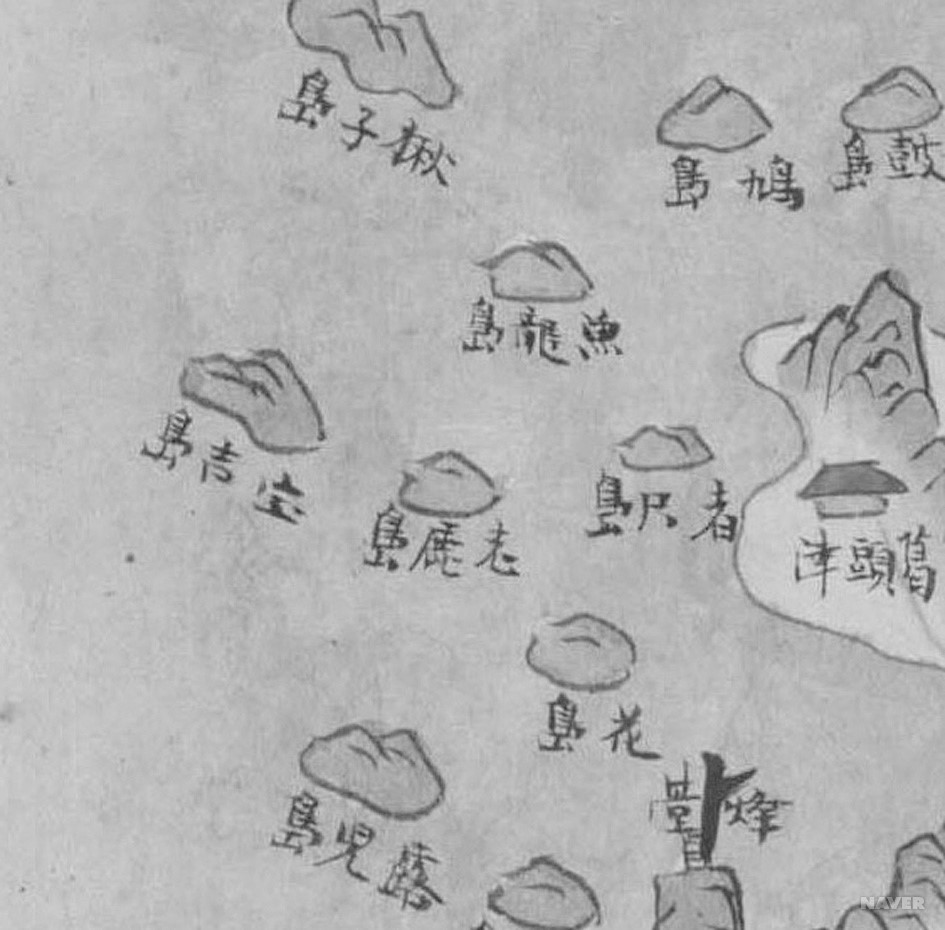 楸子島
鳩島
鼓島
漁龍島
宝吉島
老鹿島
者只島
葛頭津
花島
露児島
烽臺
NAVER